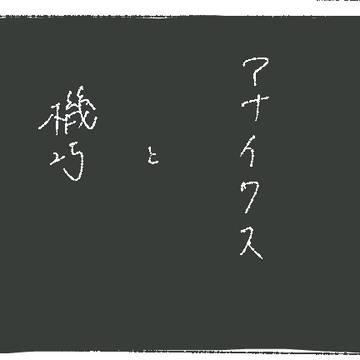 アナイワス
と
機巧